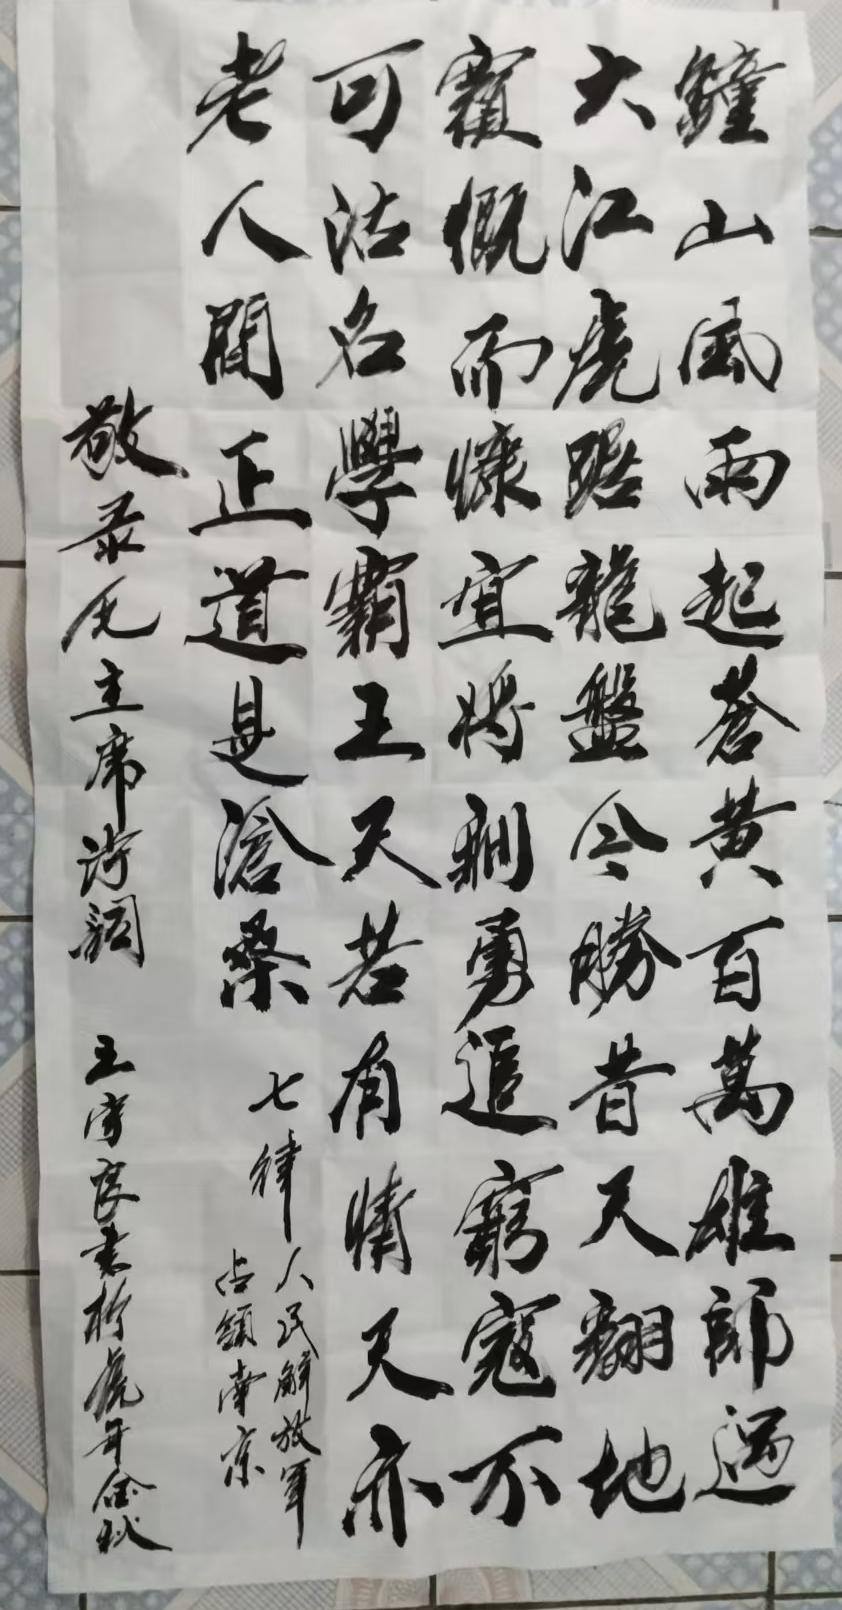 鐘山風雨起蒼黃百萬雄師過
大江虎踞龍盤今勝昔天翻地
覆慨而慷宜将剩勇追窮寇不
可沽名學霸王天若有情天亦
老人間正道是滄桑
七律
人民解放軍
占領南京
敬录毛主席诗詞
王良書於虎年金秋